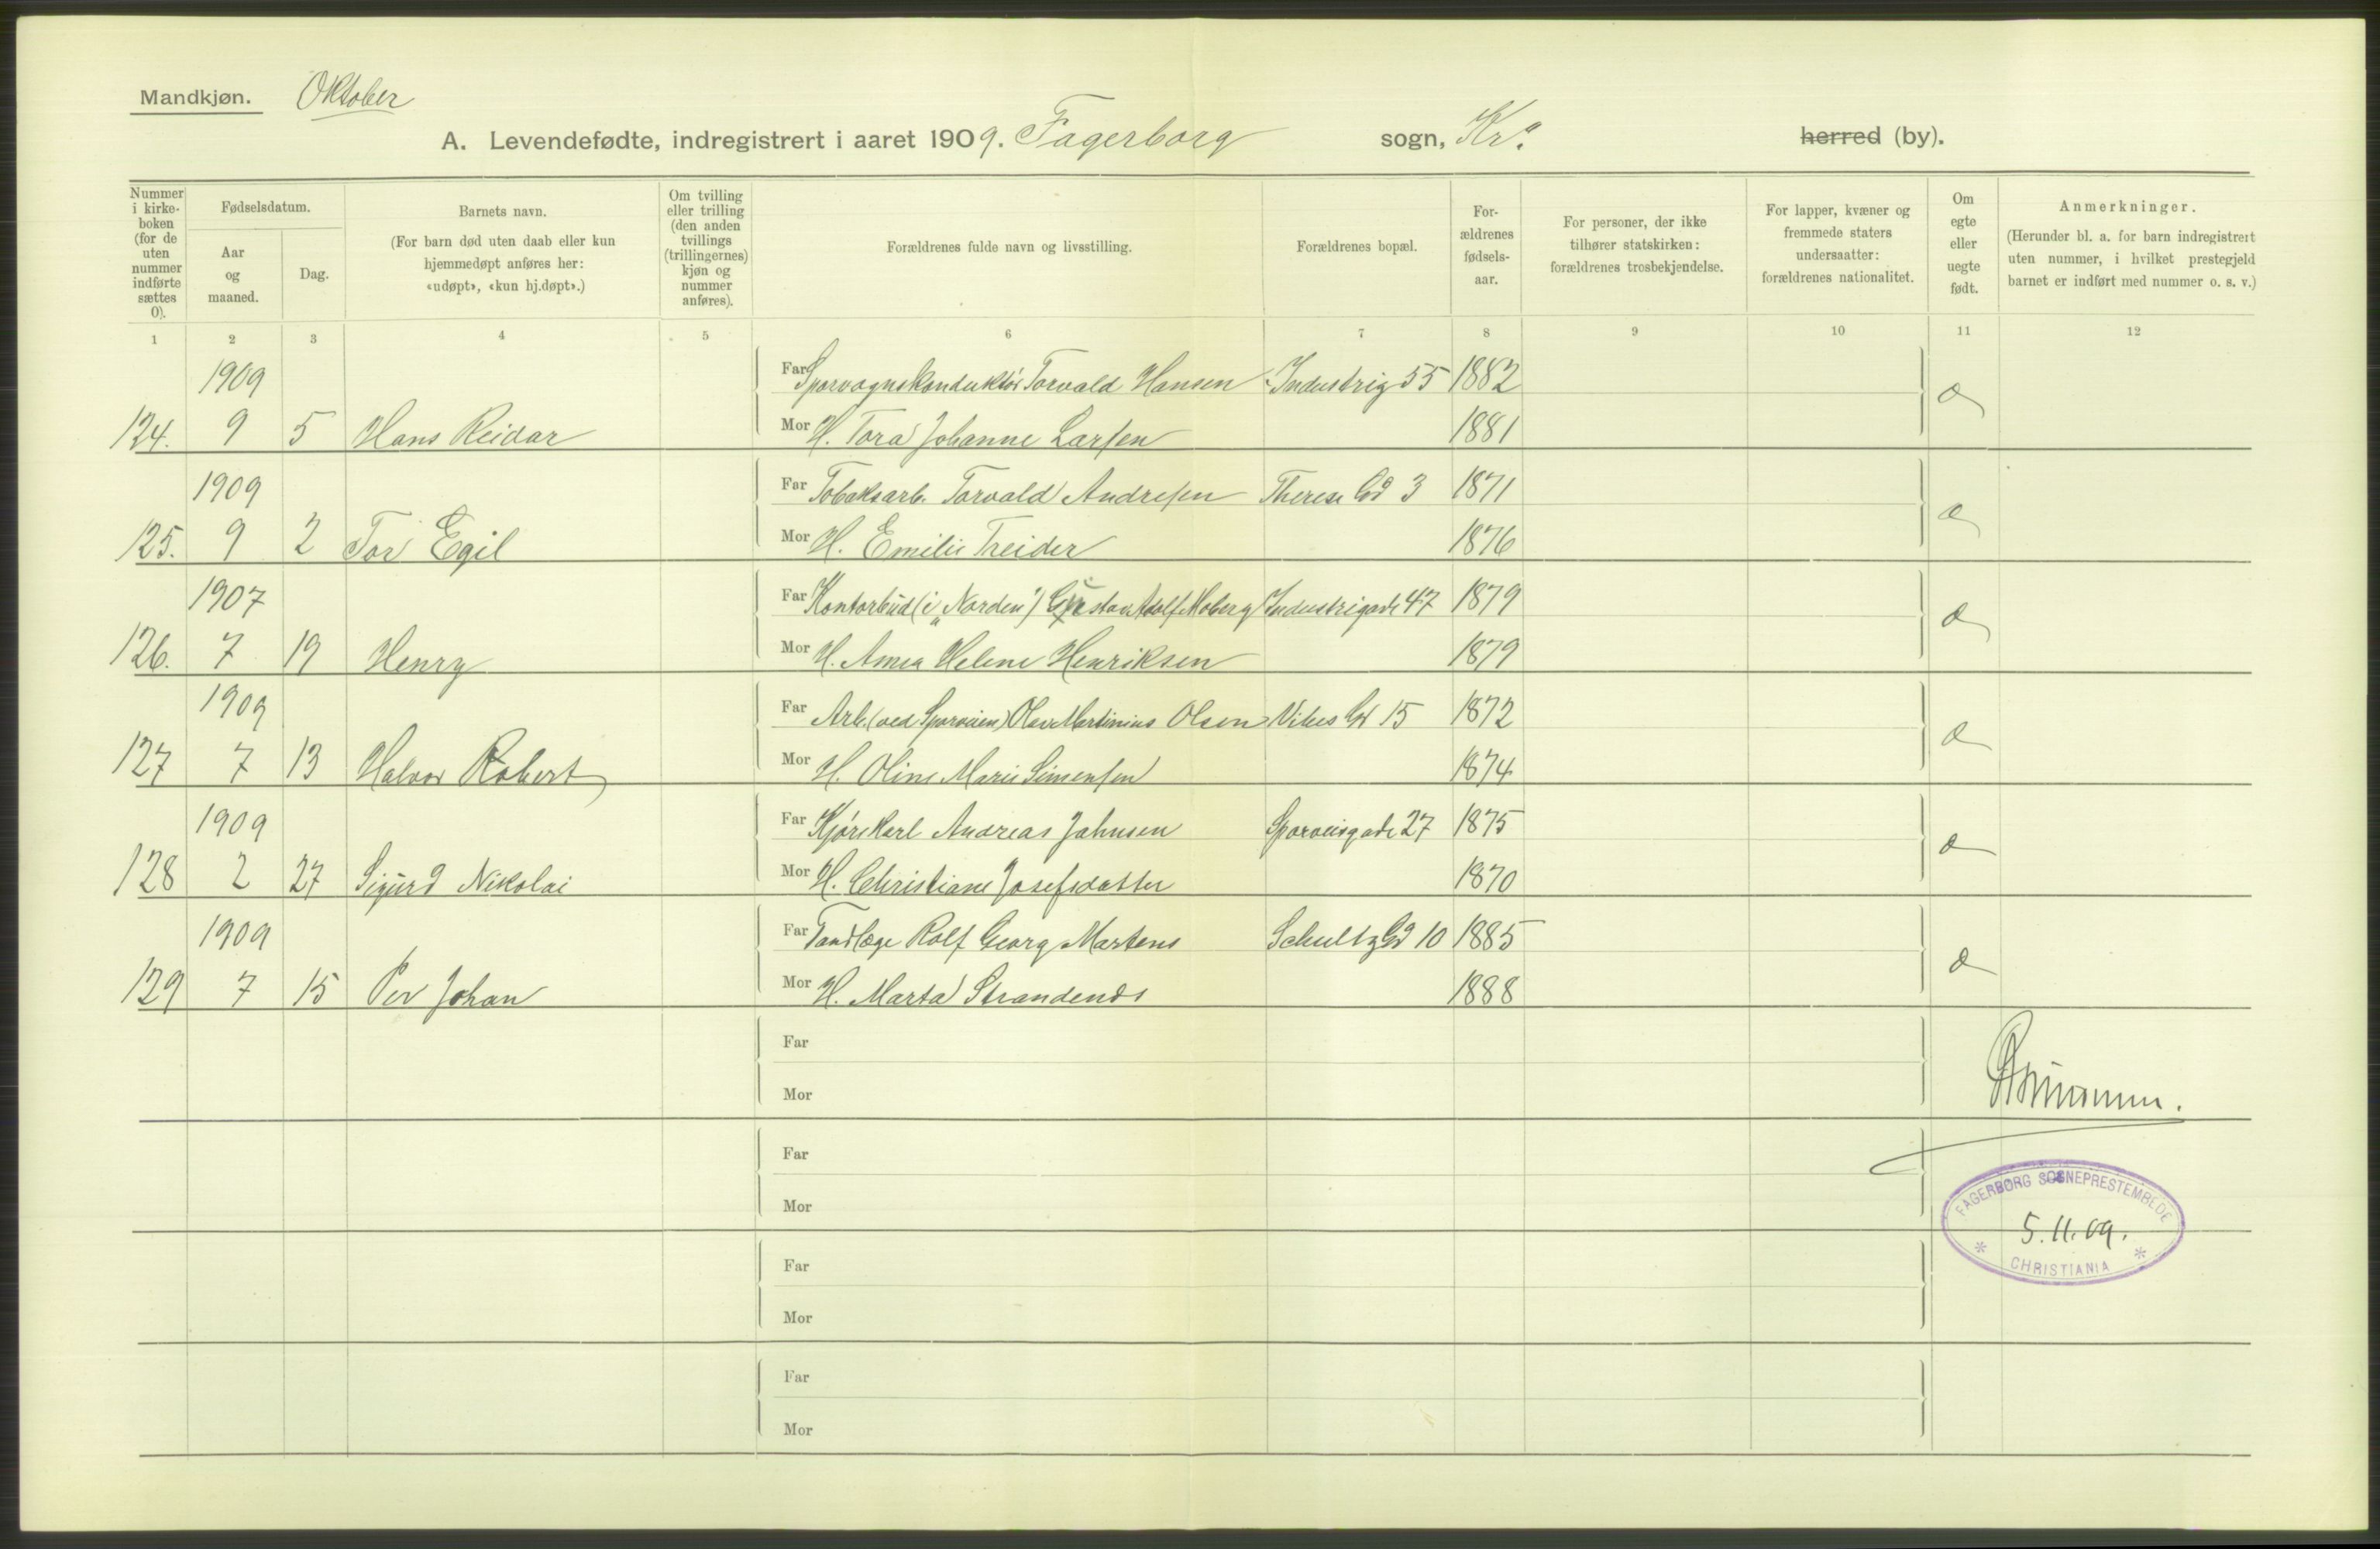 Mandkjøn. Oktober
A. Levendefødte, indregistrert i aaret 1909. Fagerborg sogn, Kr.a herred (by).
Nummer i kirke-boken (for de uten nummer indførte sættes 0).
Fødselsdatum.
Aar og maaned.
Dag.
Barnets navn.
(For barn død uten daab eller kun hjemmedøpt anføres her: «udøpt», «kun hj.døpt».)
Om tvilling eller trilling (den anden tvillings (trillingernes) kjøn og nummer anføres).
Forældrenes fulde navn og livsstilling.
Forældrenes bopæl.
For-ældrenes fødsels-aar.
For personer, der ikke tilhører statskirken: forældrenes trosbekjendelse.
For lapper, kvæner og fremmede staters undersaatter: forældrenes nationalitet.
Om egte eller uegte født.
Anmerkninger.
(Herunder bl. a. for barn indregistrert uten nummer, i hvilket prestegjeld barnet er indført med nummer o. s. v.)
1 2 3 4 5 6 7 8 9 10 11 12
1909 Far Sporvognskonduktør Torvald Hansen Industrig 55 1882
124. 9 5 Hans Reidar Mor H. Tora Johanne Larsen 1881
1909 Far Tobaksarb. Torvald Andresen Therese Gd 3 1871
125. 9 2 Tor Egil Mor H. Emilie Treider 1876
1907 Far Kontorbud (i "Norden") Gustav Adolf Moberg Industrigade 47 1879
126. 7 19 Henry Mor H. Anna Helene Henriksen 1879
1909 Far Arb. (ved Sporveien) Olav Martinius Olsen Vibes Gd 15 1872
127 7 13 Halvor Robert Mor H. Oline Marie Simensen 1874
1909 Far Kjørekarl Andreas Jahnsen Sporveisgade 27 1875
128 2 27 Sigurd Nikolai Mor H. Christiane Josefsdatter 1870
1909 Far Tandlæge Rolf Georg Martens Schultz Gd 10 1885
129 7 15 Per Johan Mor H. Marta Strandends 1888
Far
Mor
Far
Mor
FAGERBORG SOGNEPRESTEMBEDE
5.11.09.
CHRISTIANIA
Far
Mor
Far
Mor